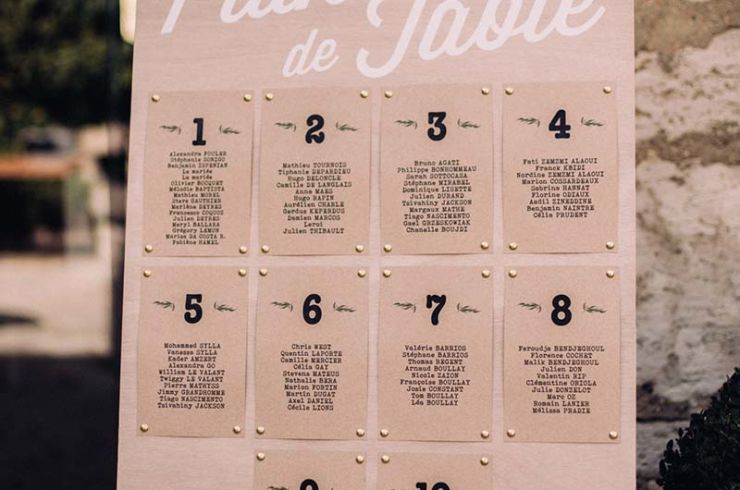 Plan
de Table
1
Alexandra POULER
Stéphanie SONIGO
Benjamin ESPENIAN
La mariée
La mariée
Olivier BOCQUET
Mélodie BAPTISTA
Mathieu MOREL
Steve GAUTHIER
Marlène DEVRES
Francesco COQUOZ
Julien DEVRES
Meryl BALLARA
Grégory LEMON
Marisa DA COSTA R.
Fabiène HAMEL
2
Mathieu TOURNOIS
Tiphanie DEPARDIEU
Hugo DELONCLE
Camille DE LANGLAIS
Anna MAES
Hugo RAPIN
Aurélien CHARLE
Gerdus KEFERDUS
Damien MARCOS
Leroi
Julien THIBAULT
3
Bruno AGATI
Philippe BONHOMMEAU
Sarah SOTTOCASA
Stéphane MINETTE
Dominique LISETTE
Julien DURAND
Tsivahiny JACKSON
Margaux MATHE
Tiago NASCIMENTO
Gael GRZESKOWIAK
Chanelle BOUJDI
4
Fati ZEMZMI ALAOUI
Franck KBIDI
Nordine ZEMZMI ALAOUI
Marion COSSARDEAUX
Sabrina HANNAT
Florine ODIAUX
Aadil ZINEDDINE
Benjamin NAINTRE
Célia PRUDENT
5
Mohammed SYLLA
Vanessa SYLLA
Kader AMZERT
Alexandra GO
William LE VALANT
Twiggy LE VALANT
Pierre MATHYSS
Jimmy GRANDHOMME
Tiago NASCIMENTO
Tsivahiny JACKSON
6
Chris WEST
Quentin LAPORTE
Camille MERCIER
Célia GAY
Stevens MATEUS
Nathalie BERA
Marion PORTIN
Martin DUGAT
Axel DANIEL
Cécile LIONS
7
Valérie BARRIOS
Stéphane BARRIOS
Thomas REGENT
Arnaud BOULLAY
Nicole ZAION
Françoise BOULLAY
Josie CONSTANT
Tom BOULLAY
Léo BOULLAY
8
Feroudja BENDJEGHOUL
Florence COCHET
Malik BENDJEGHOUL
Julien DON
Valentin RIP
Clémentine ORIOLA
Julie DONZELOT
Marc OZ
Romain LANIER
Mélissa PRADIE
9
10